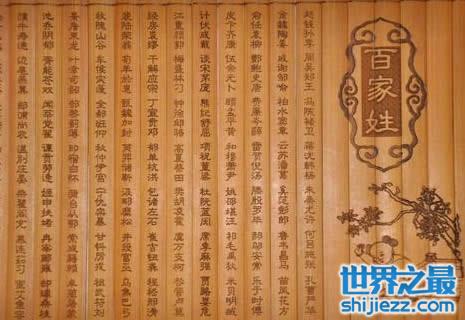 百家姓
赵钱孙李 周吴郑王 冯陈褚卫 蒋沈韩杨 朱秦尤许 何吕施张 孔曹严华
金魏陶姜 戚谢邹喻 柏水窦章 云苏潘葛 奚范彭郎 鲁韦昌马 苗凤花方
俞任袁柳 酆鲍史唐 费廉岑薛 雷贺倪汤 滕殷罗毕 郝邬安常 乐于时傅
皮卞齐康 伍余元卜 顾孟平黄 和穆萧尹 姚邵湛汪 祁毛禹狄 米贝明臧
计伏成戴 谈宋茅庞 熊纪舒屈 项祝董梁 杜阮蓝闵 席季麻强 贾路娄危
江童颜郭 梅盛林刁 钟徐邱骆 高夏蔡田 樊胡凌霍 虞万支柯 昝管卢莫
经房裘缪 干解应宗 丁宣贲邓 郁单杭洪 包诸左石 崔吉钮龚 程嵇邢滑
裴陆荣翁 荀羊於惠 甄麴加封 芮羿储靳 汲邴糜松 井段富巫 乌焦巴弓
牧隗山谷 车侯宓蓬 全郗班仰 秋仲伊宫 宁仇栾暴 甘钭厉戎 祖武符刘
景詹束龙 叶幸司韶 郜黎蓟薄 印宿白怀 蒲台从鄂 索咸籍赖 卓蔺屠蒙
池乔阴郁 胥能苍双 闻莘党翟 谭贡劳逄 姬申扶堵 冉宰郦雍 郤璩桑桂
濮牛寿通 边扈燕冀 郏浦尚农 温别庄晏 柴瞿阎充 慕连茹习 宦艾鱼容
世界之最
shijiezz.com